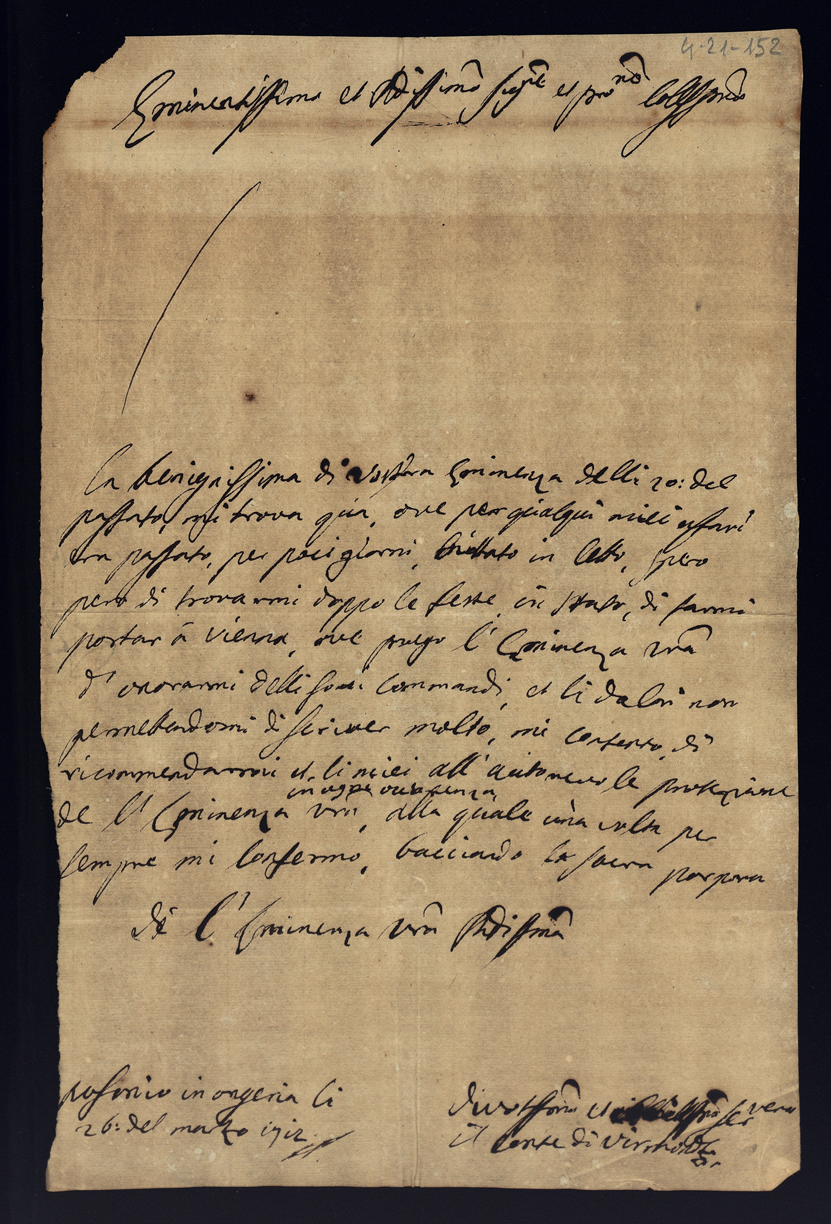 4-21-152
Eminentissimo et Rdissimo Sigre et prone Collssmo
la benignissima di vostra Eminenza delli 20: del
passato, mi trova qui, ove per qualqui miei affari
era passato, per poci giorni, in letto, spero
pero di trovarmi doppo le feste, in stato, di farmi
portar à vienna, ove prego l'Eminenza vrã
d'onorarmi delli suoi Commandi, et li dolori non
permettendomi di scriver molto, mi contento, di
ricommendarmi et li miei all' autorevole protezione
in ogni occorrenza
de l'Eminenza vrã, alla quale una volta per
sempre mi confermo, bacciando la sacra porpora
de l'Eminenza vrã Rdissimã
in ongeria li
26: del marzo 1712
divotissimo et servo
il Conte di Virmondt